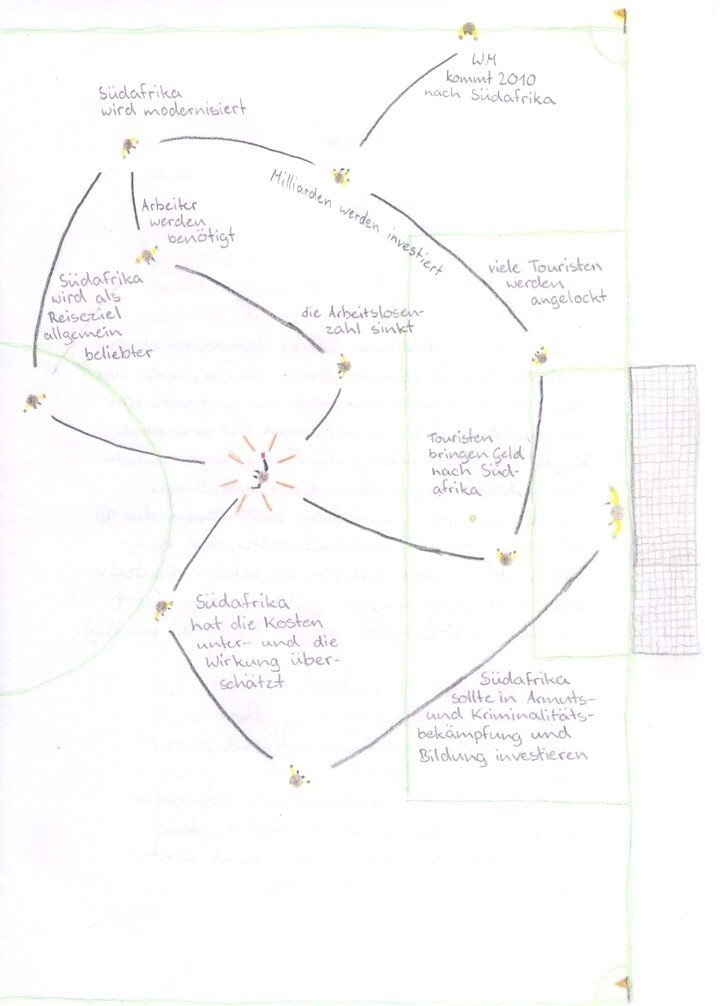 WM
kommt 2010
nach Südafrika
Südafrika
wird modernisiert
Milliarden werden investiert
Arbeiter
werden
benötigt
viele Touristen
werden
angelockt
Südafrika
wird als
Reiseziel
allgemein
beliebter
die Arbeitslosen-
zahl sinkt
Touristen
bringen Geld
nach Süd-
afrika
Südafrika
hat die Kosten
unter- und die
Wirkung über-
schätzt
Südafrika
sollte in Armuts-
und Kriminalitäts-
bekämpfung und
Bildung investieren